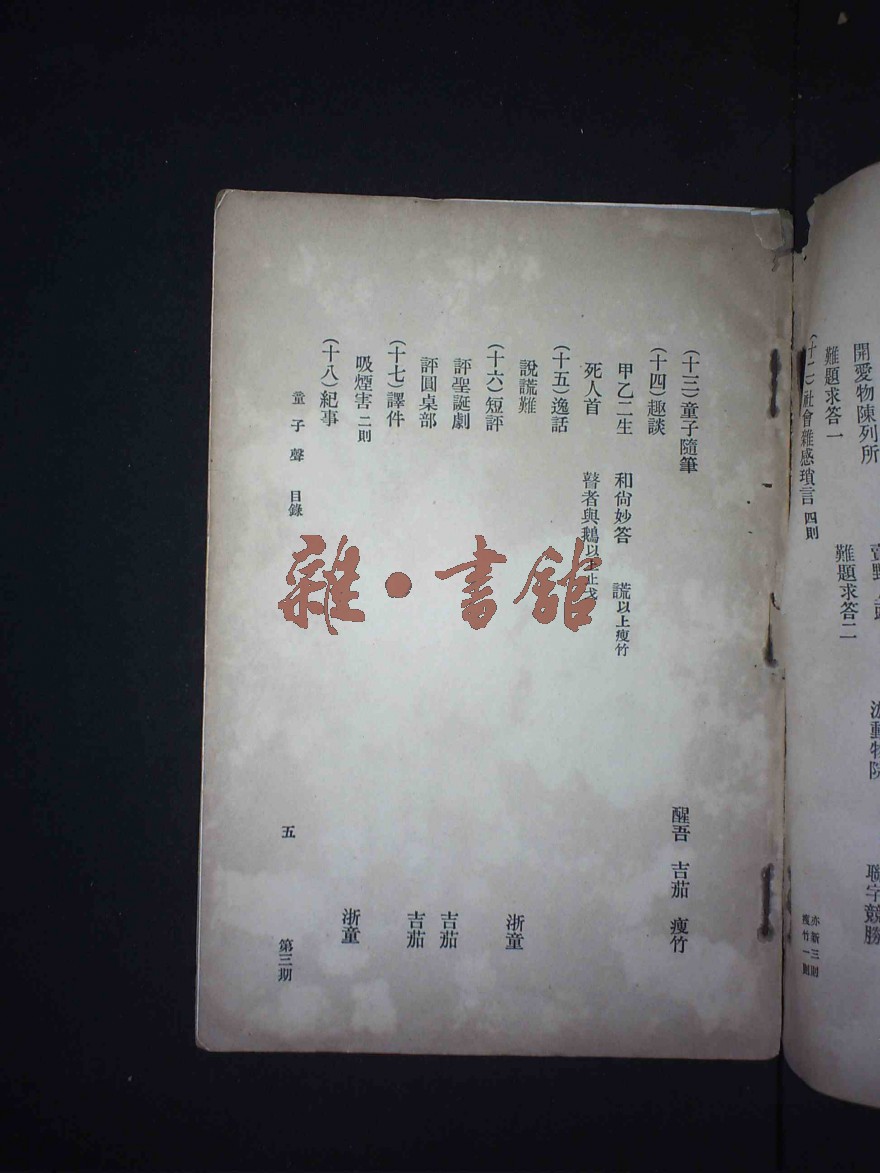 開愛物陳列所
難題求答一 難題求答二
(十二)社會雜感瑣言 四則 亦新三則 瘦竹一則
聯字競勝
(十三)童子隨筆 醒吾 吉茄 瘦竹
(十四)趣談
甲乙二生 和尙妙答 謊以上瘦竹
死人首 瞽者與鵝以上止戈
(十五)逸話
說謊難 浙童
(十六)短評
評聖誕劇 吉茄
評圓桌部 吉茄
(十七)譯件
吸煙害 二則 浙童
(十八)紀事
童子聲 目錄 五 第三期
雜·書館